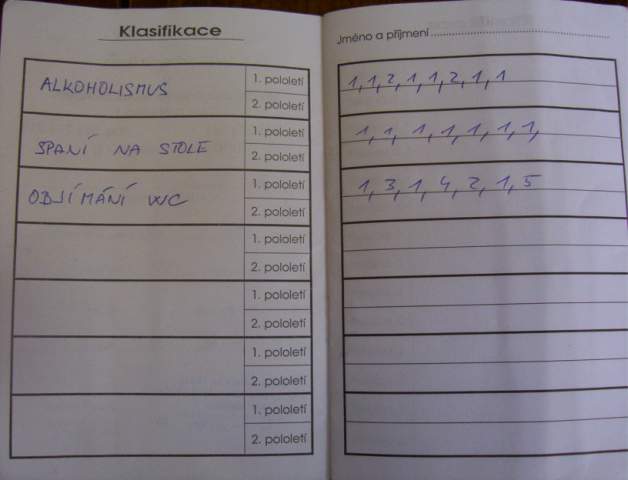 Klasifikace
ALKOHOLISMUS
1. pololetí
2. pololetí
SPANÍ NA STOLE
1. pololetí
2. pololetí
OBJÍMÁNÍ WC
1. pololetí
2. pololetí
1. pololetí
2. pololetí
1. pololetí
2. pololetí
1. pololetí
2. pololetí
1. pololetí
2. pololetí
Jméno a příjmení
1,1,2,1,1,2,1,1
1,1,1,1,1,1,1,
1,3,1,4,2,1,5